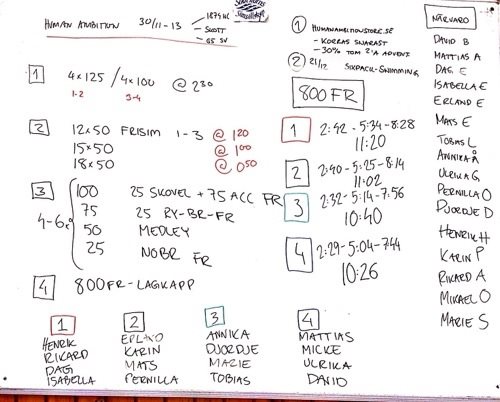 HUMAN AMBITION 30/11-13
- SCOTT
1
4x125 / 4x100 @ 230
1-2 3-4
2
12x50 FRISIM 1-3 @ 120
15x50 @ 100
18x50 @ 050
3
4-6x
100 25 SKOVEL + 75 ACC FR
75 25 RY-BR-FR
50 MEDLEY
25 NOBR FR
4
800FR-LAGKAPP
1
HENRIK
RIKARD
DAG
ISABELLA
2
ERLAND
KARIN
MATS
PERNILLA
3
ANNIKA
DJORDJE
MARIE
TOBIAS
4
MATTIAS
MICKE
ULRIKA
DAVID
1 HUMANAMBITIONSTORE.SE
- KORRAS SNARAST
- 30% TOM 2'A ADVENT
2 21/12 SIXPACK-SWIMMING
800 FR
1 2:42-5:34-8:28
11:20
2 2:40-5:25-8:14
11:02
3 2:32-5:14-7:56
10:40
4 2:29-5:04-744
10:26
NÄRVARO
DAVID B
MATTIAS A
DAG E
ISABELLA E
ERLAND E
MATS E
TOBIAS L
ANNIKA Å
ULRIKA G
PERNILLA O
DJORDJE D
HENRIK H
KARIN P
RIKARD A
MIKAEL O
MARIE S